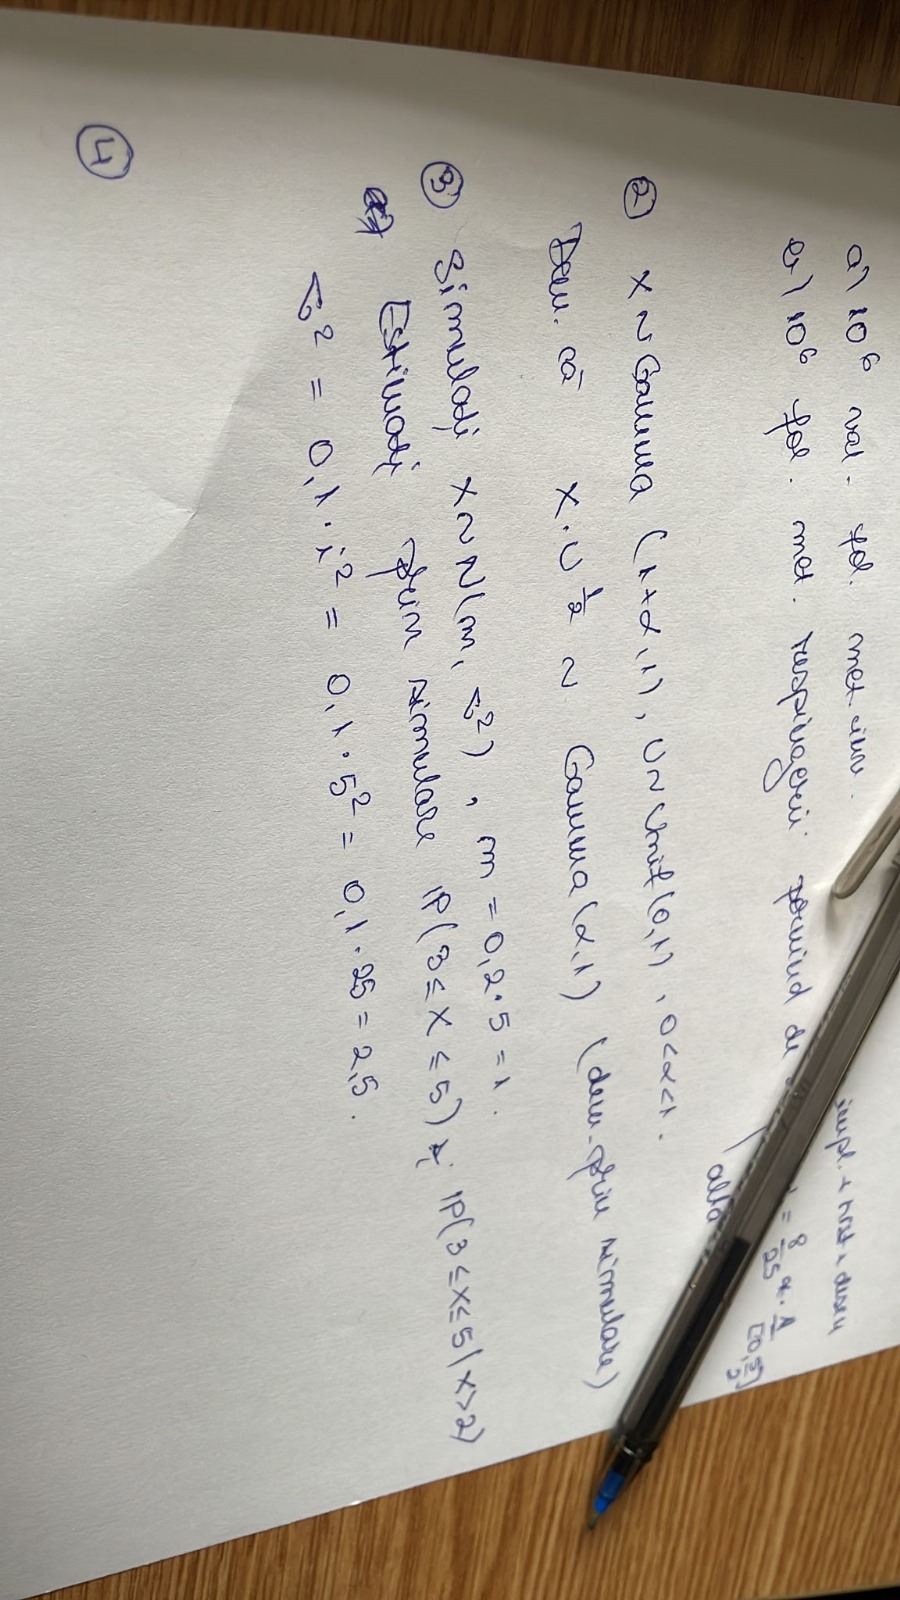 a) 10⁶ val. fol. met. inv.
impl. + hist + desen
b) 10⁶ fol. met. respingerii pornind de
= 8/25 x · 1 [0, 5/2]
alta
② X ~ Gamma (1+α, 1), U ~ Unif(0,1), 0<α<1.
Dem. că X·U^(1/2) ~ Gamma(α,1) (dem. prin simulare)
③ Simulați X ~ N(m, σ²), m = 0,2·5 = 1.
Estimați prin simulare IP(3 ≤ X ≤ 5) ; IP(3 ≤ X ≤ 5 | X > 2)
σ² = 0,1 · i² = 0,1 · 5² = 0,1 · 25 = 2,5.
④